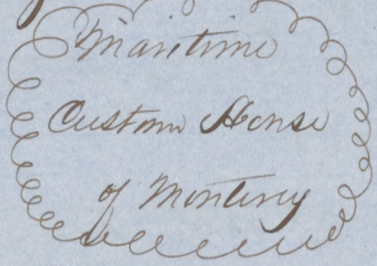 Maritime
Custom House
of Monterey